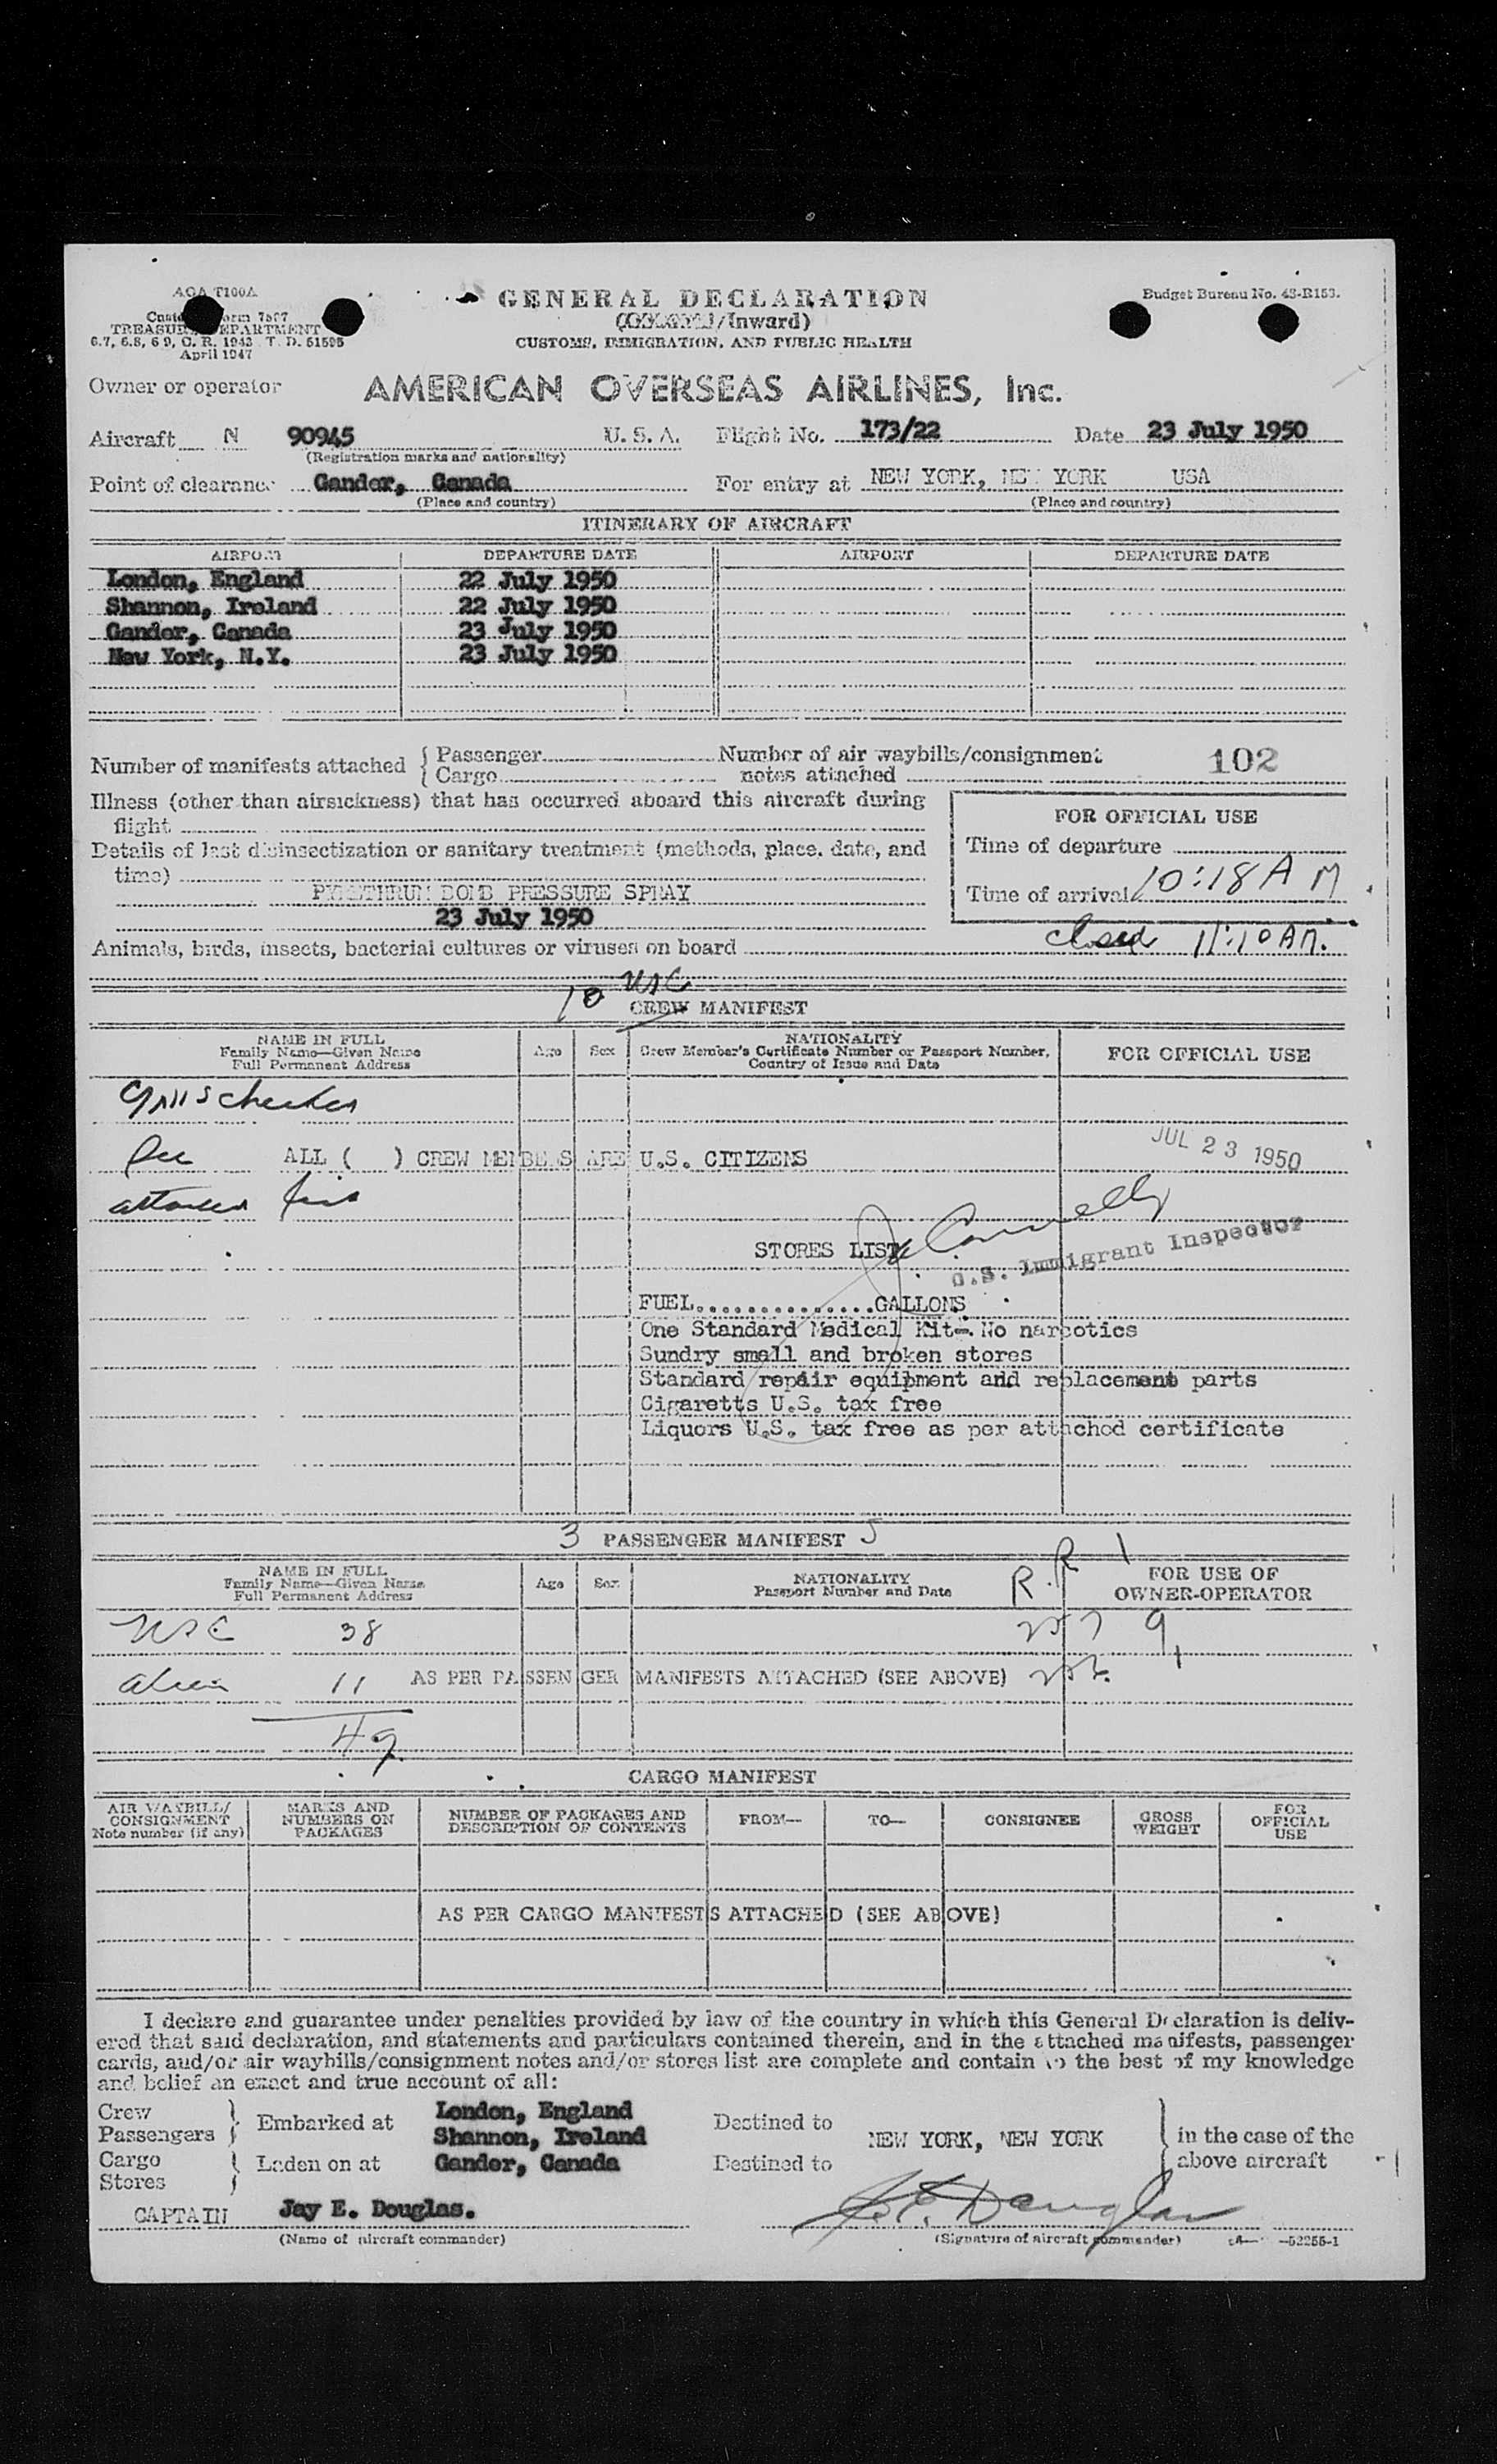 AOA T100A
Customs Form 7507
TREASURY DEPARTMENT
6.7, 6.8, 6 9, C. R. 1943 T. D. 51595
April 1947
GENERAL DECLARATION
/Inward)
CUSTOMS, IMMIGRATION, AND PUBLIC HEALTH
Budget Bureau No. 43-R153.
Owner or operator AMERICAN OVERSEAS AIRLINES, Inc.
Aircraft N 90945 U. S. A. Flight No. 173/22 Date 23 July 1950
(Registration marks and nationality)
Point of clearance Gander, Canada For entry at NEW YORK, NEW YORK USA
(Place and country) (Place and country)
ITINERARY OF AIRCRAFT
AIRPORT DEPARTURE DATE AIRPORT DEPARTURE DATE
London, England 22 July 1950
Shannon, Ireland 22 July 1950
Gander, Canada 23 July 1950
New York, N.Y. 23 July 1950
Number of manifests attached { Passenger Number of air waybills/consignment 102
{ Cargo notes attached
Illness (other than airsickness) that has occurred aboard this aircraft during
flight
FOR OFFICIAL USE
Details of last disinsectization or sanitary treatment (methods, place, date, and
time)
Time of departure
PYRETHRUM BOMB PRESSURE SPRAY
Time of arrival 10:18 A M
23 July 1950
closed 11:10 AM.
Animals, birds, insects, bacterial cultures or viruses on board
10 USC
CREW MANIFEST
NAME IN FULL
Family Name—Given Name
Full Permanent Address
Age Sex
NATIONALITY
Crew Member's Certificate Number or Passport Number,
Country of Issue and Date
FOR OFFICIAL USE
All s checked
See ALL ( ) CREW MEMBERS ARE U.S. CITIZENS
JUL 23 1950
attached list
Connelly
STORES LIST
U.S. Immigrant Inspector
FUEL...............GALLONS
One Standard Medical Kit-.No narcotics
Sundry small and broken stores
Standard repair equipment and replacement parts
Cigaretts U.S. tax free
Liquors U.S. tax free as per attached certificate
3 PASSENGER MANIFEST 5
NAME IN FULL
Family Name—Given Name
Full Permanent Address
Age Sex
NATIONALITY
Passport Number and Date
R.R 1
FOR USE OF
OWNER-OPERATOR
USC 38 257 9
alien 11 AS PER PASSENGER MANIFESTS ATTACHED (SEE ABOVE)
49
CARGO MANIFEST
AIR WAYBILL/
CONSIGNMENT
Note number (if any)
MARKS AND
NUMBERS ON
PACKAGES
NUMBER OF PACKAGES AND
DESCRIPTION OF CONTENTS
FROM—
TO—
CONSIGNEE
GROSS
WEIGHT
FOR
OFFICIAL
USE
AS PER CARGO MANIFESTS ATTACHED (SEE ABOVE)
I declare and guarantee under penalties provided by law of the country in which this General Declaration is deliv-
ered that said declaration, and statements and particulars contained therein, and in the attached manifests, passenger
cards, and/or air waybills/consignment notes and/or stores list are complete and contain to the best of my knowledge
and belief an exact and true account of all:
Crew
Passengers } Embarked at London, England
Shannon, Ireland
Destined to NEW YORK, NEW YORK
in the case of the
above aircraft
Cargo
Stores } Laden on at Gander, Canada Destined to
CAPTAIN Jay E. Douglas. J. E. Douglas
(Name of aircraft commander) (Signature of aircraft commander) —52255-1